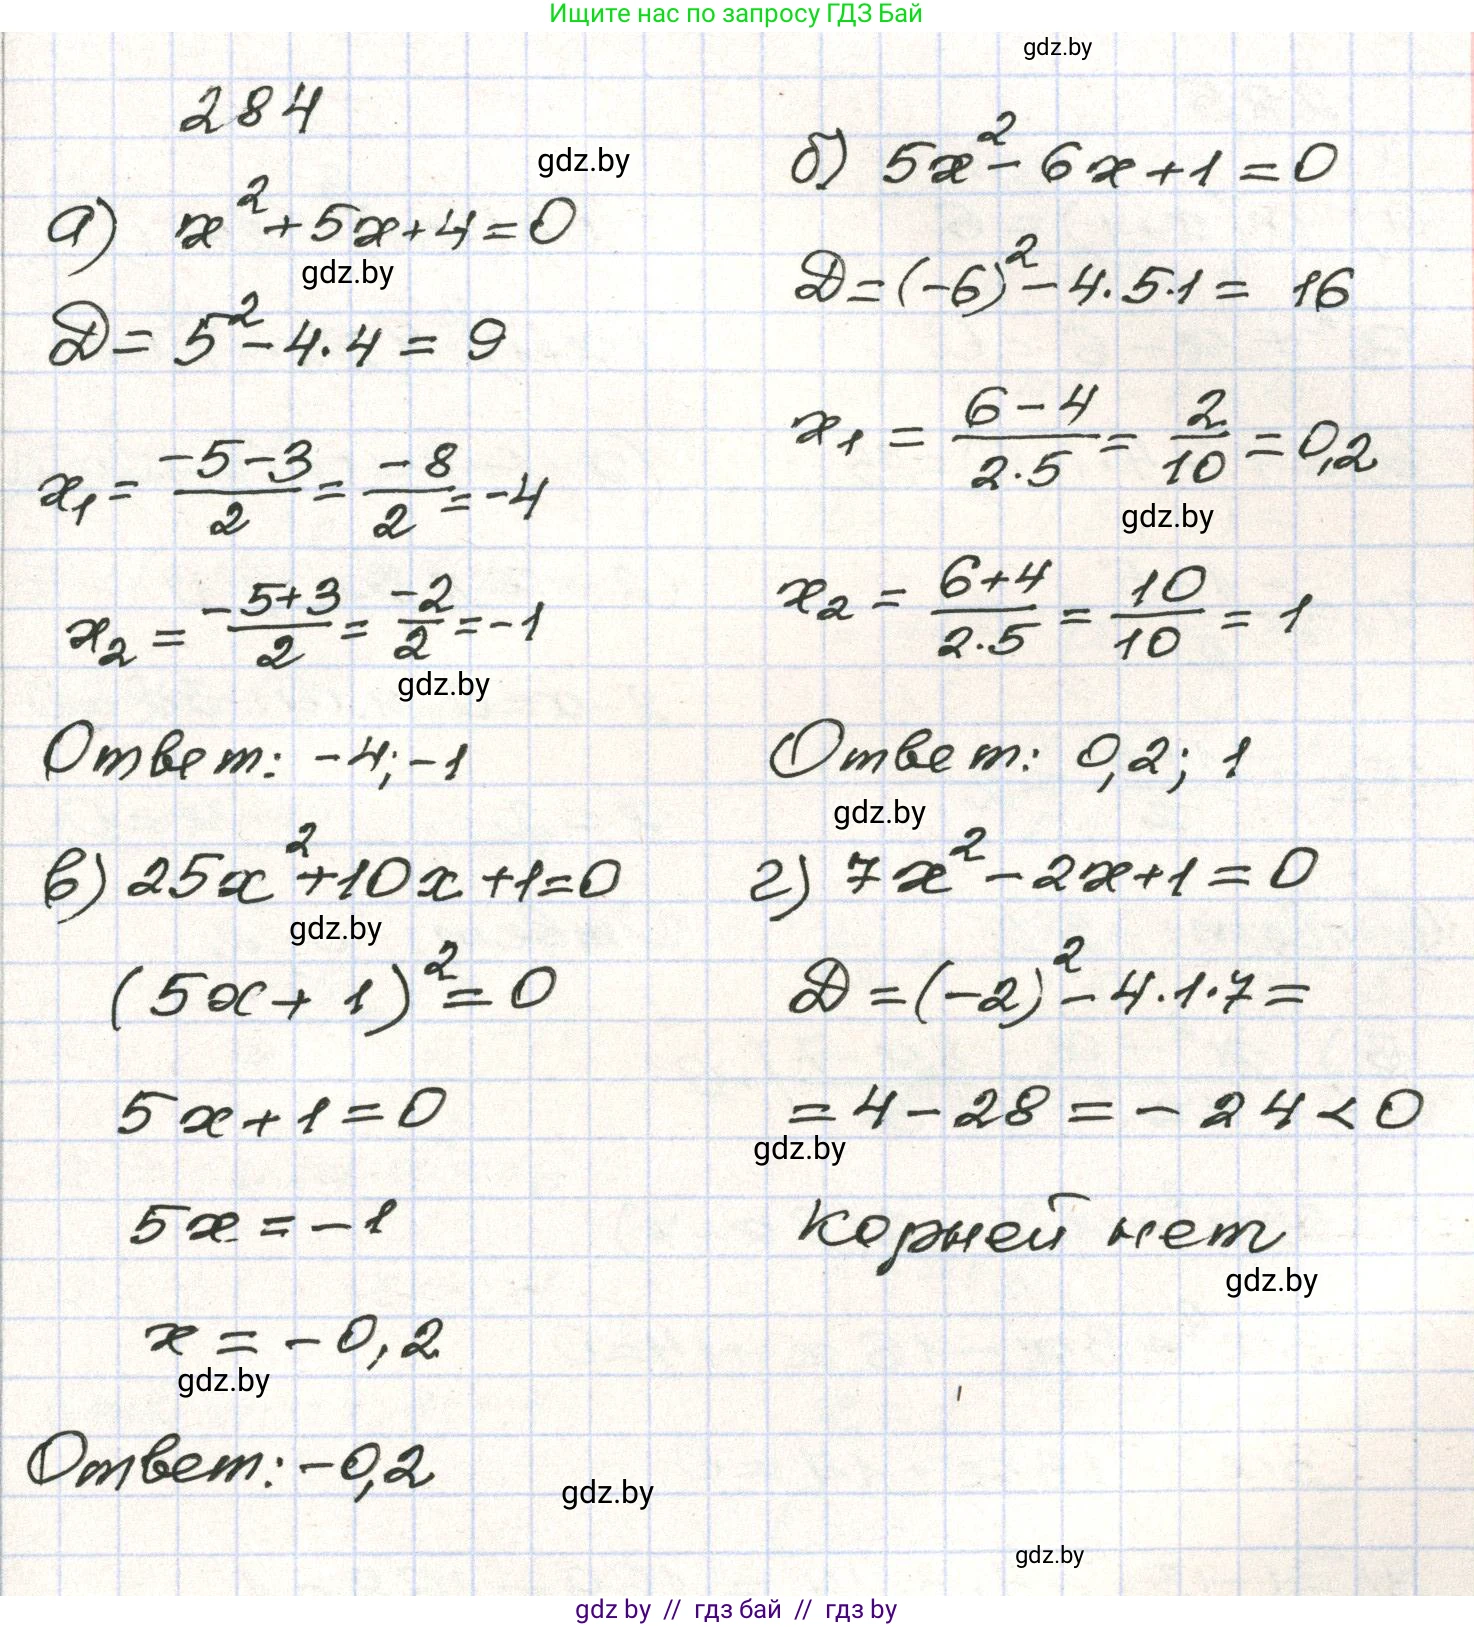 Ищите нас по запросу ГДЗ Бай
gdz.by
284
gdz.by
а) x² + 5x + 4 = 0
gdz.by
Д = 5² - 4·4 = 9
x₁ = (-5-3)/2 = -8/2 = -4
x₂ = (-5+3)/2 = -2/2 = -1
gdz.by
Ответ: -4; -1
б) 5x² - 6x + 1 = 0
Д = (-6)² - 4·5·1 = 16
x₁ = (6-4)/(2·5) = 2/10 = 0,2
gdz.by
x₂ = (6+4)/(2·5) = 10/10 = 1
Ответ: 0,2; 1
gdz.by
в) 25x² + 10x + 1 = 0
gdz.by
(5x + 1)² = 0
5x + 1 = 0
5x = -1
x = -0,2
gdz.by
Ответ: -0,2
gdz.by
г) 7x² - 2x + 1 = 0
Д = (-2)² - 4·1·7 =
= 4 - 28 = -24 < 0
gdz.by
корней нет
gdz.by
gdz.by
gdz by // гдз бай // гдз by